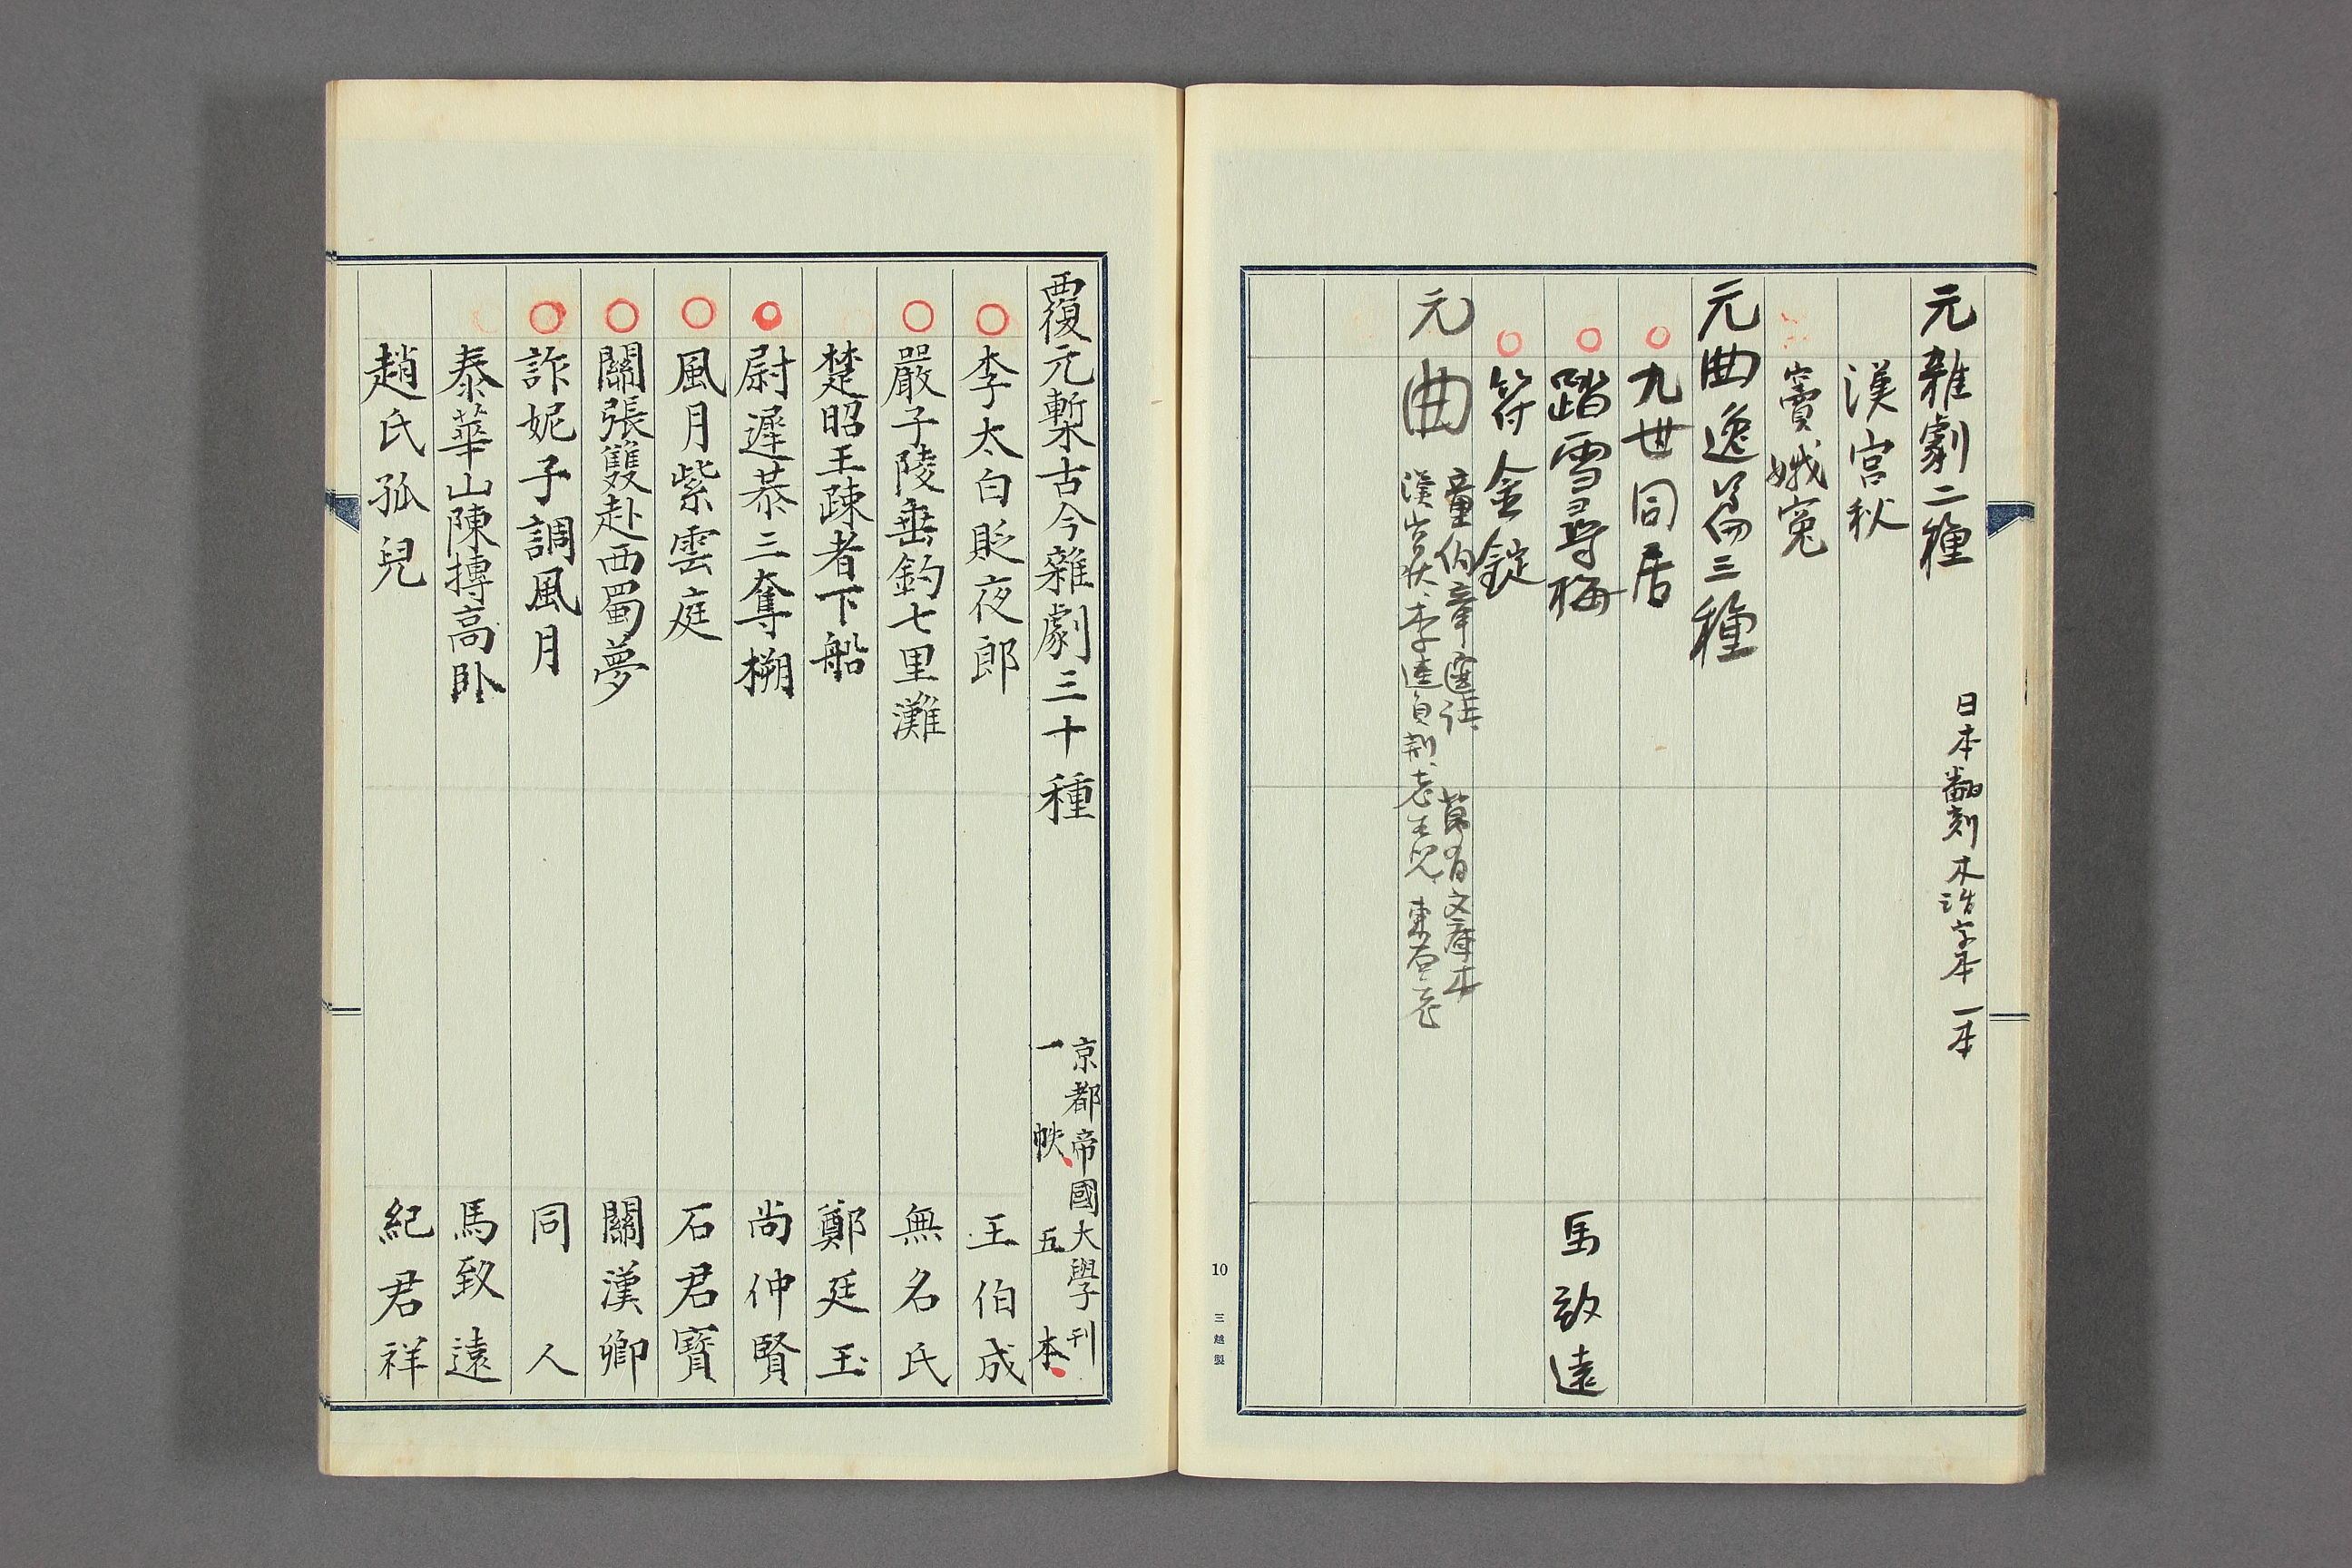 元雜劇二種 日本翻刻木活字本 一本
漢宮秋
竇娥寃
元曲逸篇三種
九世同居
踏雪尋梅 馬致遠
符金錠
元曲
童伯章選註 萬有文庫本
漢宮秋 李逵負荆 老生兒 東堂老
10 三越製
覆元槧古今雜劇三十種
京都帝國大學刊
一帙 五本
李太白貶夜郎 王伯成
嚴子陵垂釣七里灘 無名氏
楚昭王踈者下船 鄭廷玉
尉遲恭三奪槊 尚仲賢
風月紫雲庭 石君寶
關張雙赴西蜀夢 關漢卿
詐妮子調風月 同人
泰華山陳摶高卧 馬致遠
趙氏孤兒 紀君祥